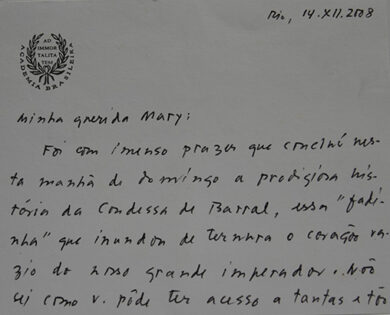 Rio, 14.XII.2008
AD
IMMOR
TALITA
TEM
ACADEMIA BRASILEIRA
Minha querida Mary:
Foi com imenso prazer que concluí nes-
ta manhã de domingo a prodigiosa his-
tória da Condessa de Barral, essa "fadi-
nha" que inundou de ternura o coração va-
zio do nosso grande imperador. Não
sei como v. pôde ter acesso a tantas e tão